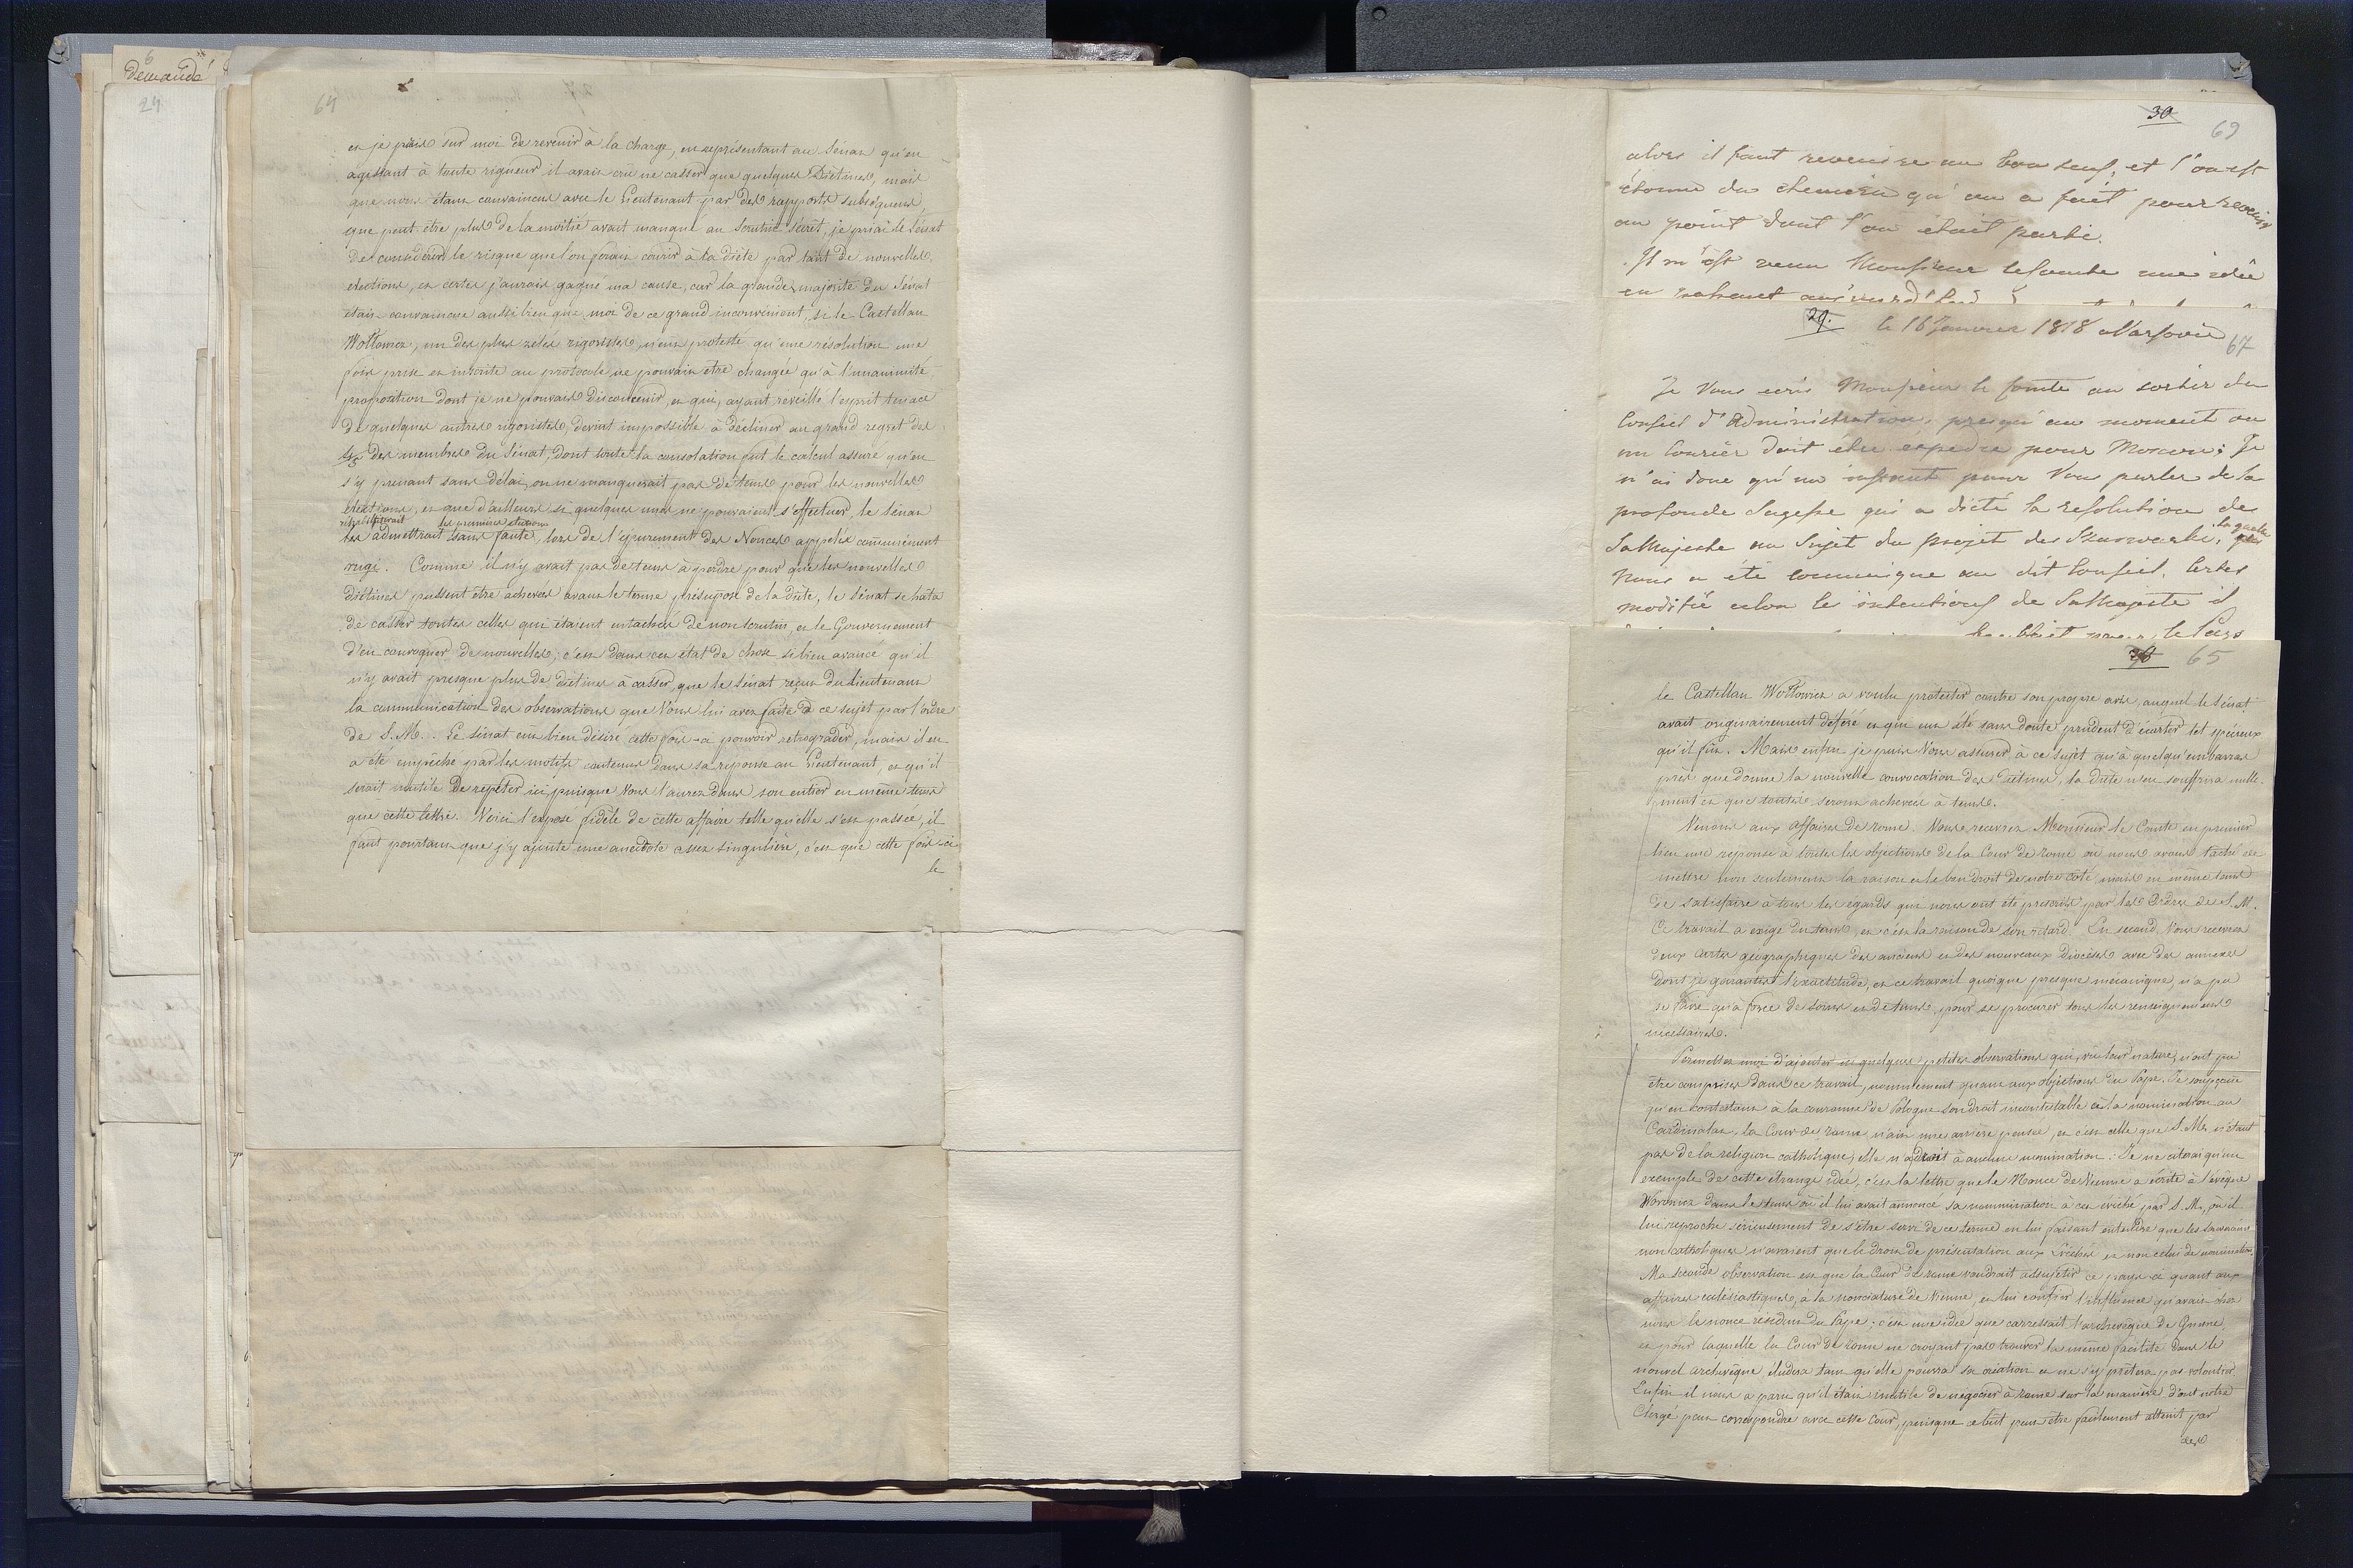 demandé
24
64
et je pris sur moi de revenir à la charge, en représentant au Sénat qu'en
agissant à toute rigueur il avait crû ne casser que quelques Diétines, mais
que nous étant convaincus avec le Lieutenant par des rapports subséquens,
que peut être plus de la moitié avait manqué au Scrutin sécret, je priai le Sénat
de considérer le risque que l'on ferait courir à la diète par tant de nouvelles
élections, et certes j'aurais gagné ma cause, car la grande majorité du Sénat
était convaincue aussi bien que moi de ce grand inconvénient, si le Castellan
Wottowicz, un des plus zélés rigoristes, n'eut protesté qu'une résolution une
fois prise et inscrite au protocole ne pouvait être changée qu'à l'unanimité
proposition dont je ne pouvais disconvenir, et qui, ayant réveillé l'esprit tenace
de quelques autres rigoristes, devint impossible à décliner au grand regret des
4/5 des membres du Sénat, dont toute la consolation fut le calcul assuré qu'en
s'y prenant sans délai, on ne manquerait pas de tems pour les nouvelles
élections, et que d'ailleurs si quelques unes ne pouvaient s'effectuer, le Sénat
les premières élections
les admettrait sans faute, lors de l'épurement des Nonces appelés communément
rugi. Comme il n'y avait pas de tems à perdre pour que les nouvelles
diétines pussent être achevées avant le terme présuposé de la diète, le Sénat se hâta
de casser toutes celles qui étaient entachées de non scrutin, et le Gouvernement
d'en convoquer de nouvelles; c'est dans cet état de chose si bien avancé qu'il
n'y avait presque plus de diétines à casser, que le Sénat reçut du Lieutenant
la communication des observations que Vous lui avez faite à ce sujet par l'ordre
de S. M. Le Sénat eut bien désiré cette fois-ci pouvoir rétrograder, mais il en
a été empêché par les motifs contenus dans sa réponse au Lieutenant, et qu'il
serait inutile de repéter ici puisque Vous l'aurez dans son entier en même tems
que cette lettre. Voici l'exposé fidèle de cette affaire telle qu'elle s'est passée, il
faut pourtant que j'y ajoute une anecdote assez singulière, c'est que cette fois-ci
le
30
69
alors il faut revenir au bon sens, et l'on est
étonné du chemin qu'on a fait pour revenir
au point dont l'on était parti.
Il m'est venu Monsieur le Comte une idée
29.
le 16 Janvier 1818 à Varsovie
67
Je Vous ecris Monsieur le Comte au sortir du
Conseil d'Administration, presqu'au moment ou
un Courier doit etre expedié pour Moscou; Je
n'ai donc qu'un instant pour Vous parler de la
profonde Sagesse qui a dicté la resolution de
Sa Majesté au Sujet du projet des Skarwarki, la quelle
nous a été communique au dit Conseil. Certes
modifié selon les intentions de Sa Majesté il
28
65
le Castellan Wottowicz a voulu protester contre son propre avis, auquel le Sénat
avait originairement déféré et qui eut été sans doute prudent d'écarter tot spécieux
qu'il fut. Mais enfin je puis Vous assurer à ce sujet qu'à quelqu'embarras
près que donne la nouvelle convocation des diétines, la diète n'en souffrira nulle-
ment et que toutes seront achevées à tems.
Venons aux affaires de rome. Vous recevrez Monsieur le Comte en premier
lieu une reponse à toutes les objections de la Cour de rome où nous avons taché de
mettre non seulement la raison et le bon droit de notre coté, mais en même tems
de satisfaire à tous les égards qui nous ont été prescrits par les Ordres de S. M.
Ce travail a exigé du tems, et c'est la raison de son retard. En second, Vous recevrez
deux cartes géographiques des anciens et des nouveaux Diocèses avec des annexes
dont je garantis l'exactitude, et ce travail quoique presque mécanique, n'a pu
se faire qu'à force de soins et de tems, pour se procurer tous les renseignemens
necessaires.
Permettez moi d'ajouter ici quelques petites observations qui, vu leur nature, n'ont pu
être comprises dans ce travail, nommément quant aux objections du Pape. Je soupçonne
qu'en contestant à la couronne de Pologne son droit incontestable à la nomination au
Cardinalat, la Cour de rome n'ait une arrière pensée, et c'est celle que S. M. n'étant
pas de la religion catholique, elle n'a droit à aucune nomination: Je ne citerai qu'un
exemple de cette étrange idée, c'est la lettre que le Nonce de Vienne a écrite à l'évêque
Woronicz dans le tems où il lui avait annoncé sa nommination à cet évêché par S. M., où il
lui reproche sérieusement de s'être servi de ce terme en lui faisant entendre que les souverains
non catholiques n'avaient que le droit de présentation aux Evêchés et non celui de nomination.
Ma seconde observation est que la Cour de rome voudrait assujetir ce pays-ci quant aux
affaires eclésiastiques, à la nonciature de Vienne, et lui confier l'influence qu'avait chez
nous le nonce résident du Pape; c'est une idée que carressait l'archevêque de Gnesne,
et pour laquelle la Cour de rome ne croyant pas trouver la même facilité dans le
nouvel archevêque éludera tant qu'elle pourra sa création et ne s'y prêtera pas volontier.
Enfin il nous a paru qu'il était inutile de negocier à rome sur la manière dont notre
Clergé peut correspondre avec cette Cour, puisque ce but peut être facilement atteint par
des